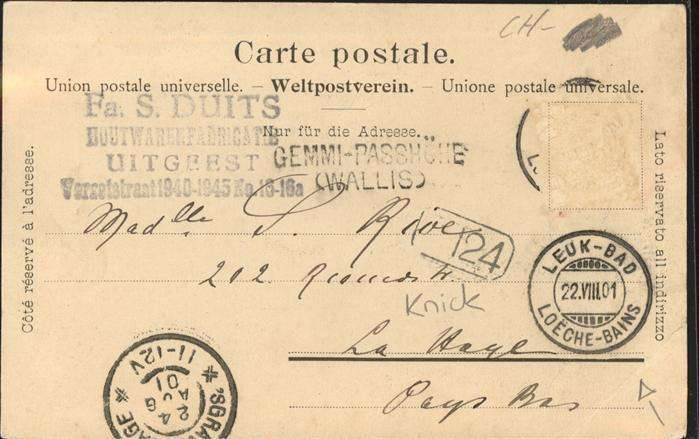 CH-
Carte postale.
Union postale universelle. — Weltpostverein. — Unione postale universale.
Fa. S. DUITS
HOUTWARENFABRICATIE
UITGEEST
Verzetstraat 1940-1945 No. 16-16a
Nur für die Adresse.
GEMMI-PASSHÖHE
(WALLIS)
Côté réservé à l'adresse.
Lato riservato all indirizzo
Madlle S.
124
202
Knick
La Haye
Pays Bas
LEUK-BAD
22.VIII.01
LOËCHE-BAINS
'SGRA AGE
11-12V
24
AUG
01